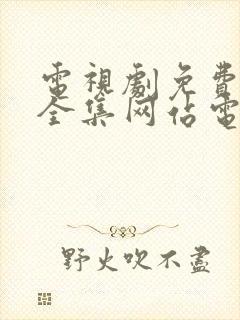 電視劇免費
全集网佔電
野火吹不盡